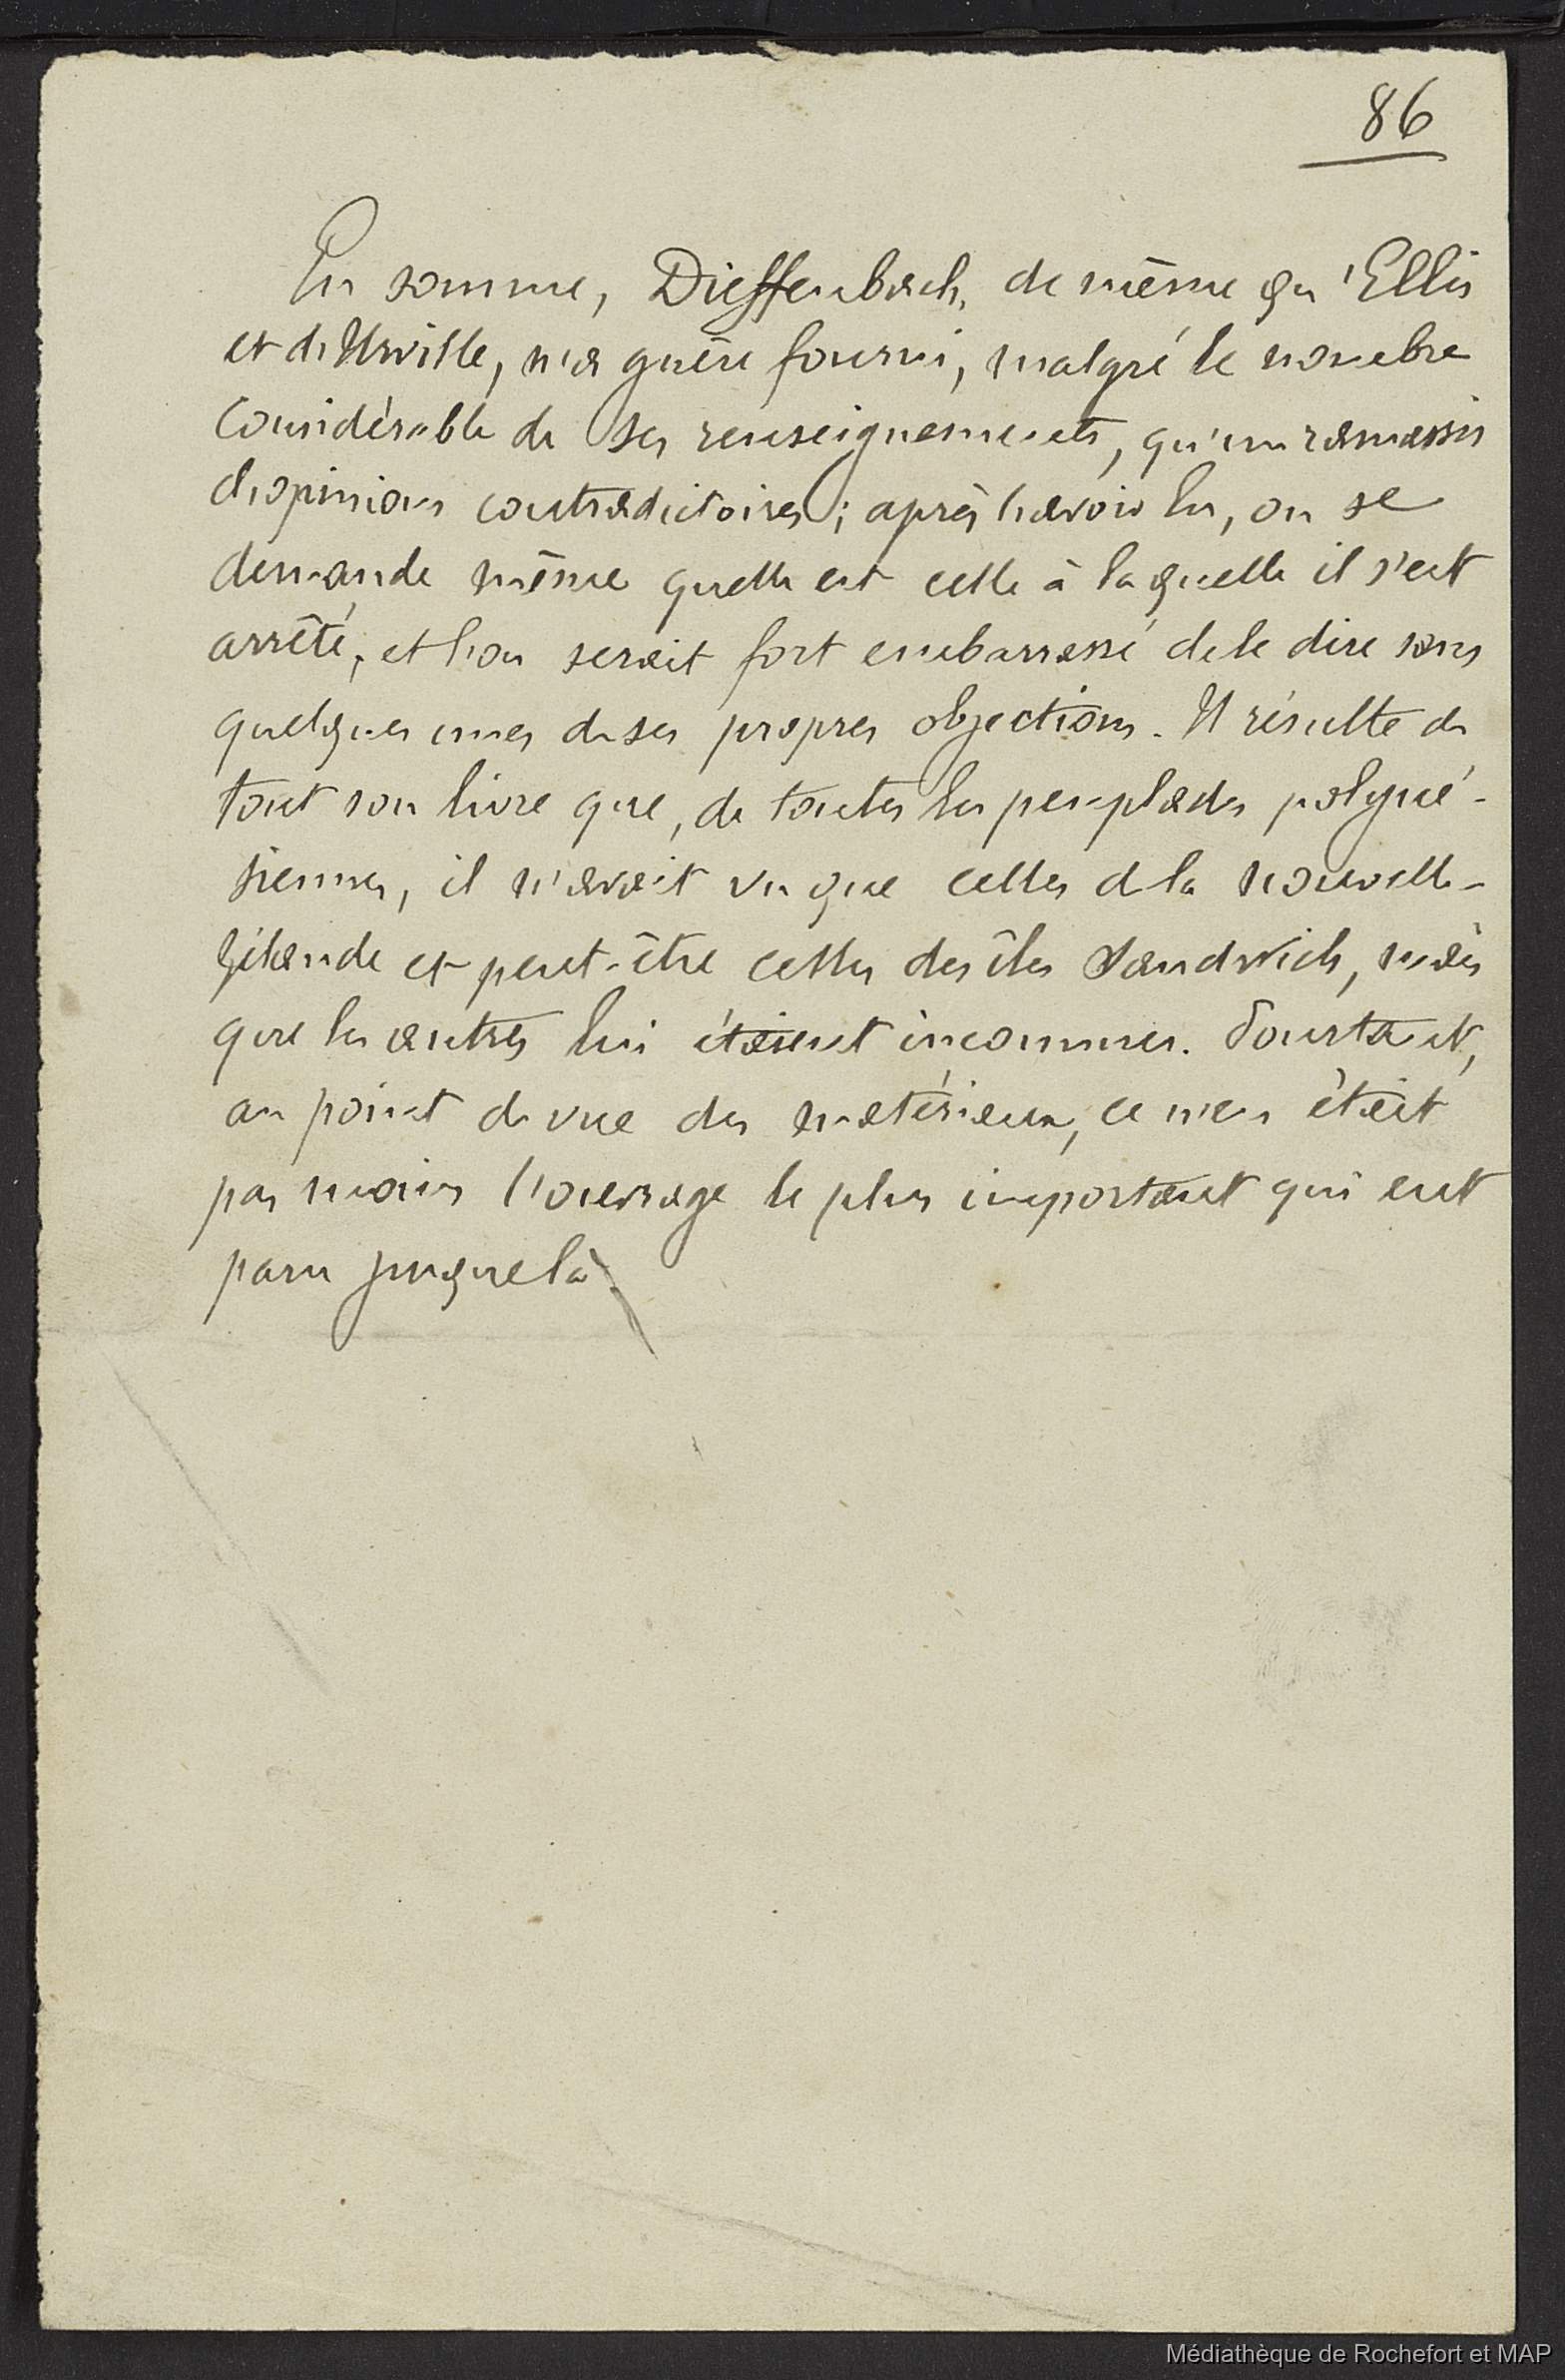 86
En somme, Dieffenbach, de même qu'Ellis
et d'Urville, n'a guère fourni, malgré le nombre
considérable de ses renseignements, qu'un ramassis
d'opinions contradictoires; après l'avoir lu, on se
demande même quelle est celle à laquelle il s'est
arrêté, et l'on serait fort embarrassé de le dire sans
quelques unes de ses propres objections. Il résulte de
tout son livre que, de toutes les peuplades polyné-
siennes, il n'avait vu que celles de la Nouvelle-
Zélande et peut-être celles des îles Sandwich, mais
que les autres lui étaient inconnues. Pourtant,
au point de vue des matériaux, ce n'en était
pas moins l'ouvrage le plus important qui eut
paru jusque là.
Médiathèque de Rochefort et MAP